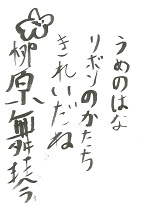 うめのはな
リボンのかたち
きれいだね
柳原舞琴